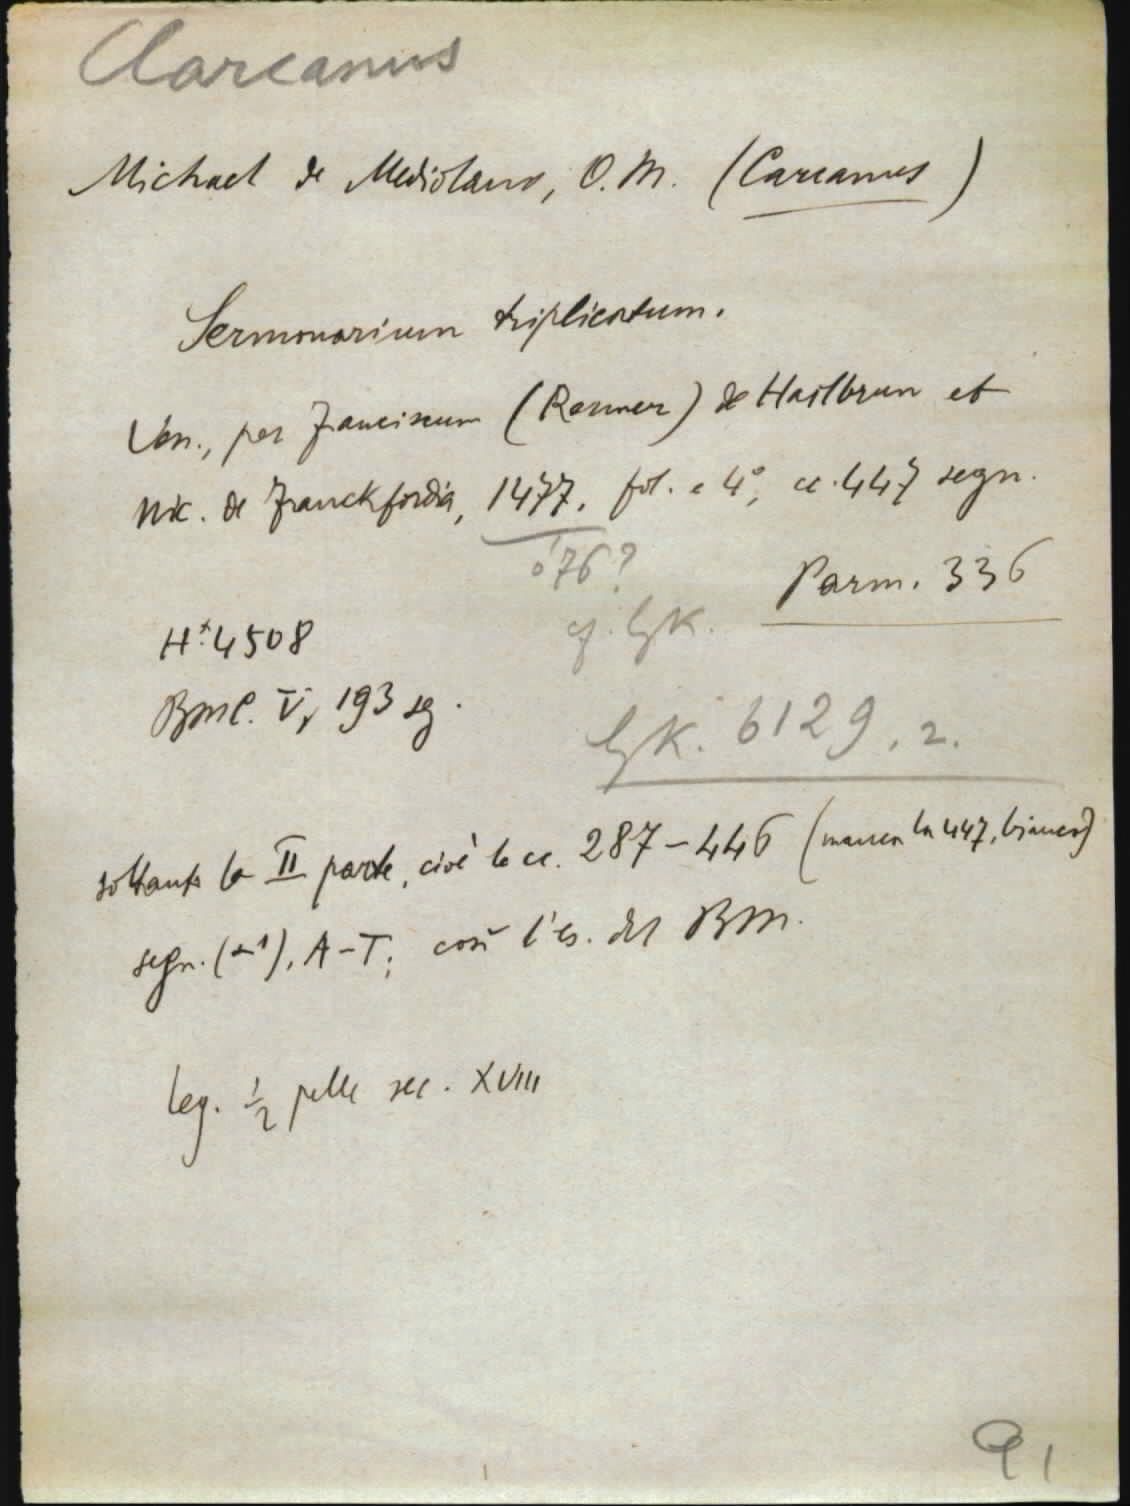 Carcanus
Michael de Mediolano, O. M. (Carcanus)
Sermonarium triplicatum.
Ven., per Franciscum (Renner) de Hailbrun et
Nic. de Franckfordia, 1477, fol. e 4°, cc. 447 segn.
o '76?
cf. GK.
Parm. 336
H*. 4508
BMC. V, 193 sg.
GK. 6129, 2.
soltanto la II parte, cioè le cc. 287-446 (manca la 447, bianca)
segn. A-T; così l'es. del BM.
leg. ½ pelle sec. XVIII
91